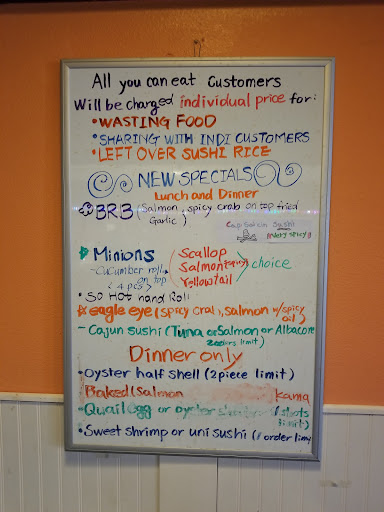 All you can eat Customers
Will be charged individual price for:
• WASTING FOOD
• SHARING WITH INDI CUSTOMERS
• LEFT OVER SUSHI RICE
NEW SPECIALS
Lunch and Dinner
BRB (Salmon, spicy crab on top fried
Garlic)
Sushi
very spicy
Minions
- Cucumber roll
on top
(4 pcs)
(Scallop
Salmon (spicy)
Yellowtail) choice
• So Hot hand Roll
eagle eye (spicy crab, salmon w/spicy
oil)
- Cajun sushi (Tuna or Salmon or Albacore
2 orders limit)
Dinner only
• Oyster half shell (2 piece limit)
Baked (Salmon Kama
• Quail egg or oyster shooters (shots
limit)
• Sweet shrimp or uni sushi (1 order lim